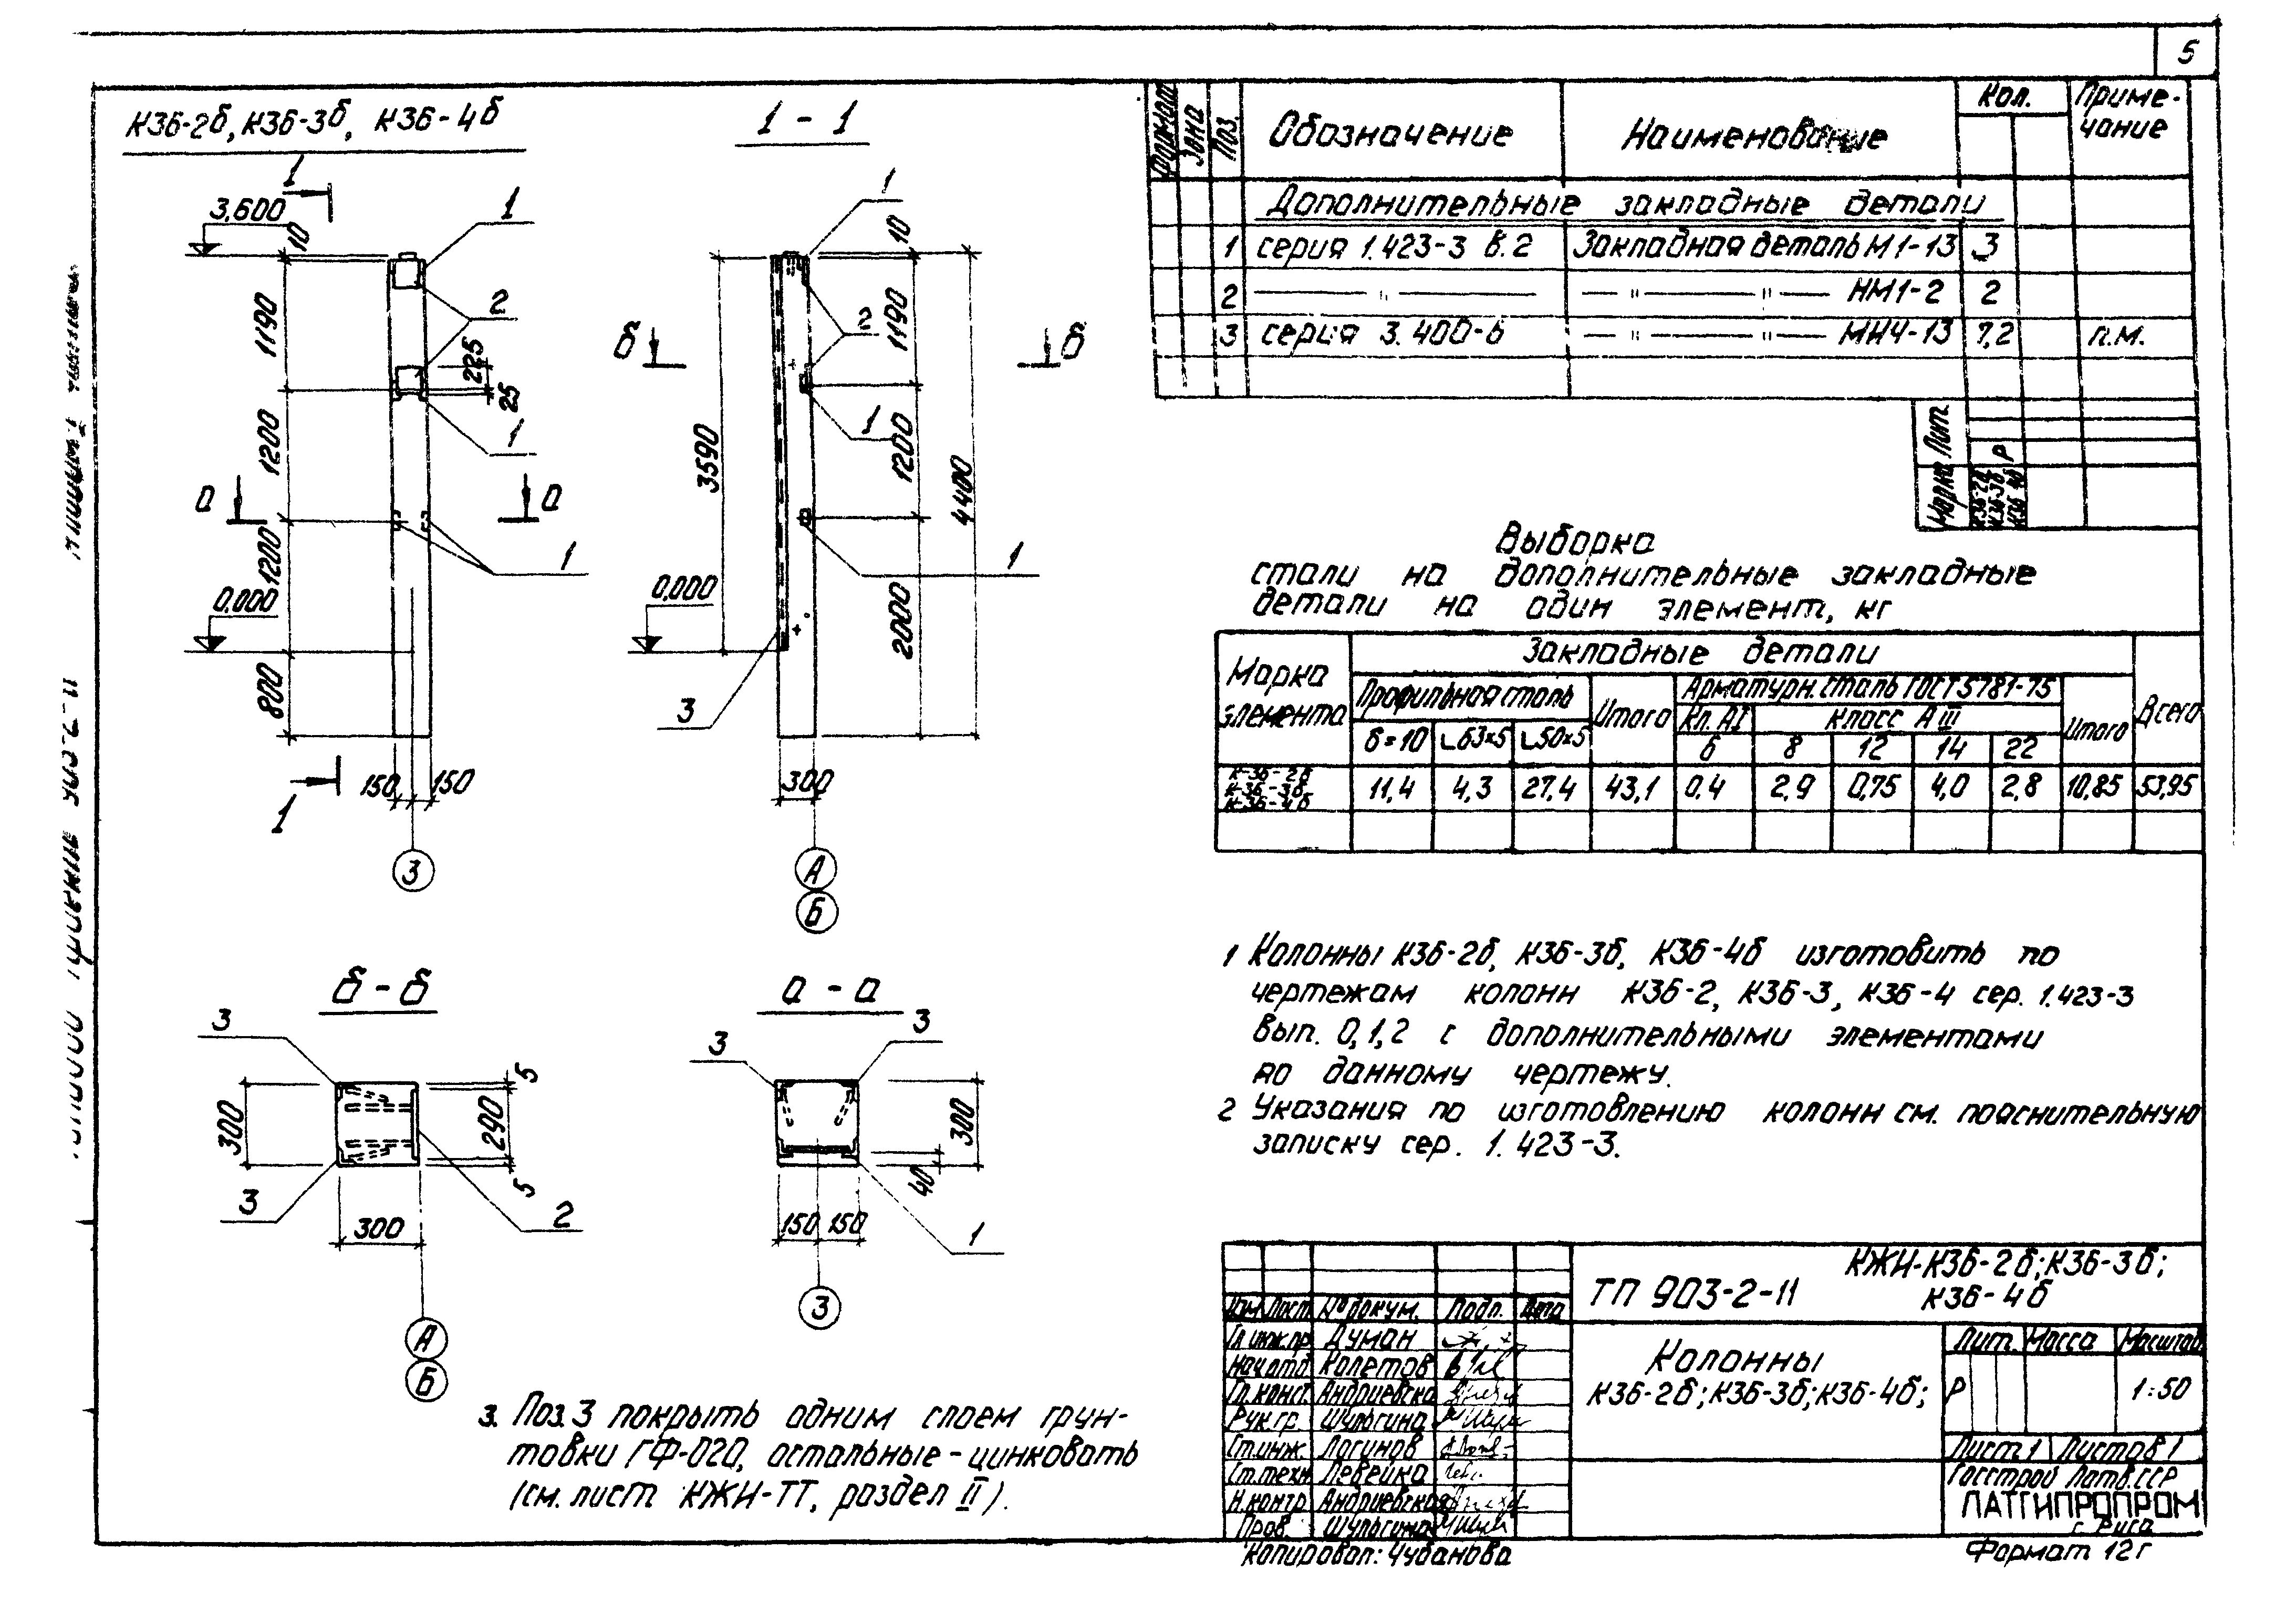 5
К36-2б, К36-3б, К36-4б
1 - 1
1
3,600
10
1
2
1190
225
25
1
1200
а
а
1
1200
0,000
800
1
150
150
3
1
10
2
1190
б
б
1
1200
3590
4400
1
0,000
2000
3
300
А
Б
б - б
3
5
300
290
5
3
2
300
А
Б
а - а
3
3
300
40
150
150
1
3
3. Поз.3 покрыть одним слоем грун-
товки ГФ-020, остальные - цинковать
(см. лист КЖИ-ТТ, раздел II).
Формат
Зона
Поз.
Обозначение
Наименование
Кол.
Приме-
чание
Дополнительные закладные детали
1 серия 1.423-3 в.2 Закладная деталь М1-13 3
2 — " — — " — " — НМ1-2 2
3 серия 3.400-6 — " — " — МН4-13 7,2 п.м.
Лит.
Р
Марка
К36-2б
К36-3б
К36-4б
Выборка
стали на дополнительные закладные
детали на один элемент, кг
Марка
элемента
Закладные детали
Профильная сталь
Итого
Арматурн. сталь ГОСТ 5781-75
Итого
Всего
Кл. АI
класс А III
б=10 ∟63х5 ∟50х5 6 8 12 14 22
К-36-2б
К-36-3б
К-36-4б
11,4 4,3 27,4 43,1 0,4 2,9 0,75 4,0 2,8 10,85 53,95
1 Колонны К36-2б, К36-3б, К36-4б изготовить по
чертежам колонн К36-2, К36-3, К36-4 сер. 1.423-3
вып. 0,1,2 с дополнительными элементами
по данному чертежу.
2 Указания по изготовлению колонн см. пояснительную
записку сер. 1.423-3.
КЖИ-К36-2б; К36-3б;
К36-4б
ТП 903-2-11
Изм Лист № докум. Подп. Дата
Гл.инж.пр. Думан
Нач.отд. Колетов
Гл.конст. Андриевска
Рук.гр. Шульгина
Ст.инж. Логинов
Ст.техн. Левейка
Н.контр. Андриевская
Пров. Шульгина
Колонны
К36-2б; К36-3б; К36-4б;
Лит. Масса Масштаб
Р 1:50
Лист 1 Листов 1
Госстрой Латв.ССР
ЛАТГИПРОПРОМ
г. Рига
Копировал: Чубанова
Формат 12г